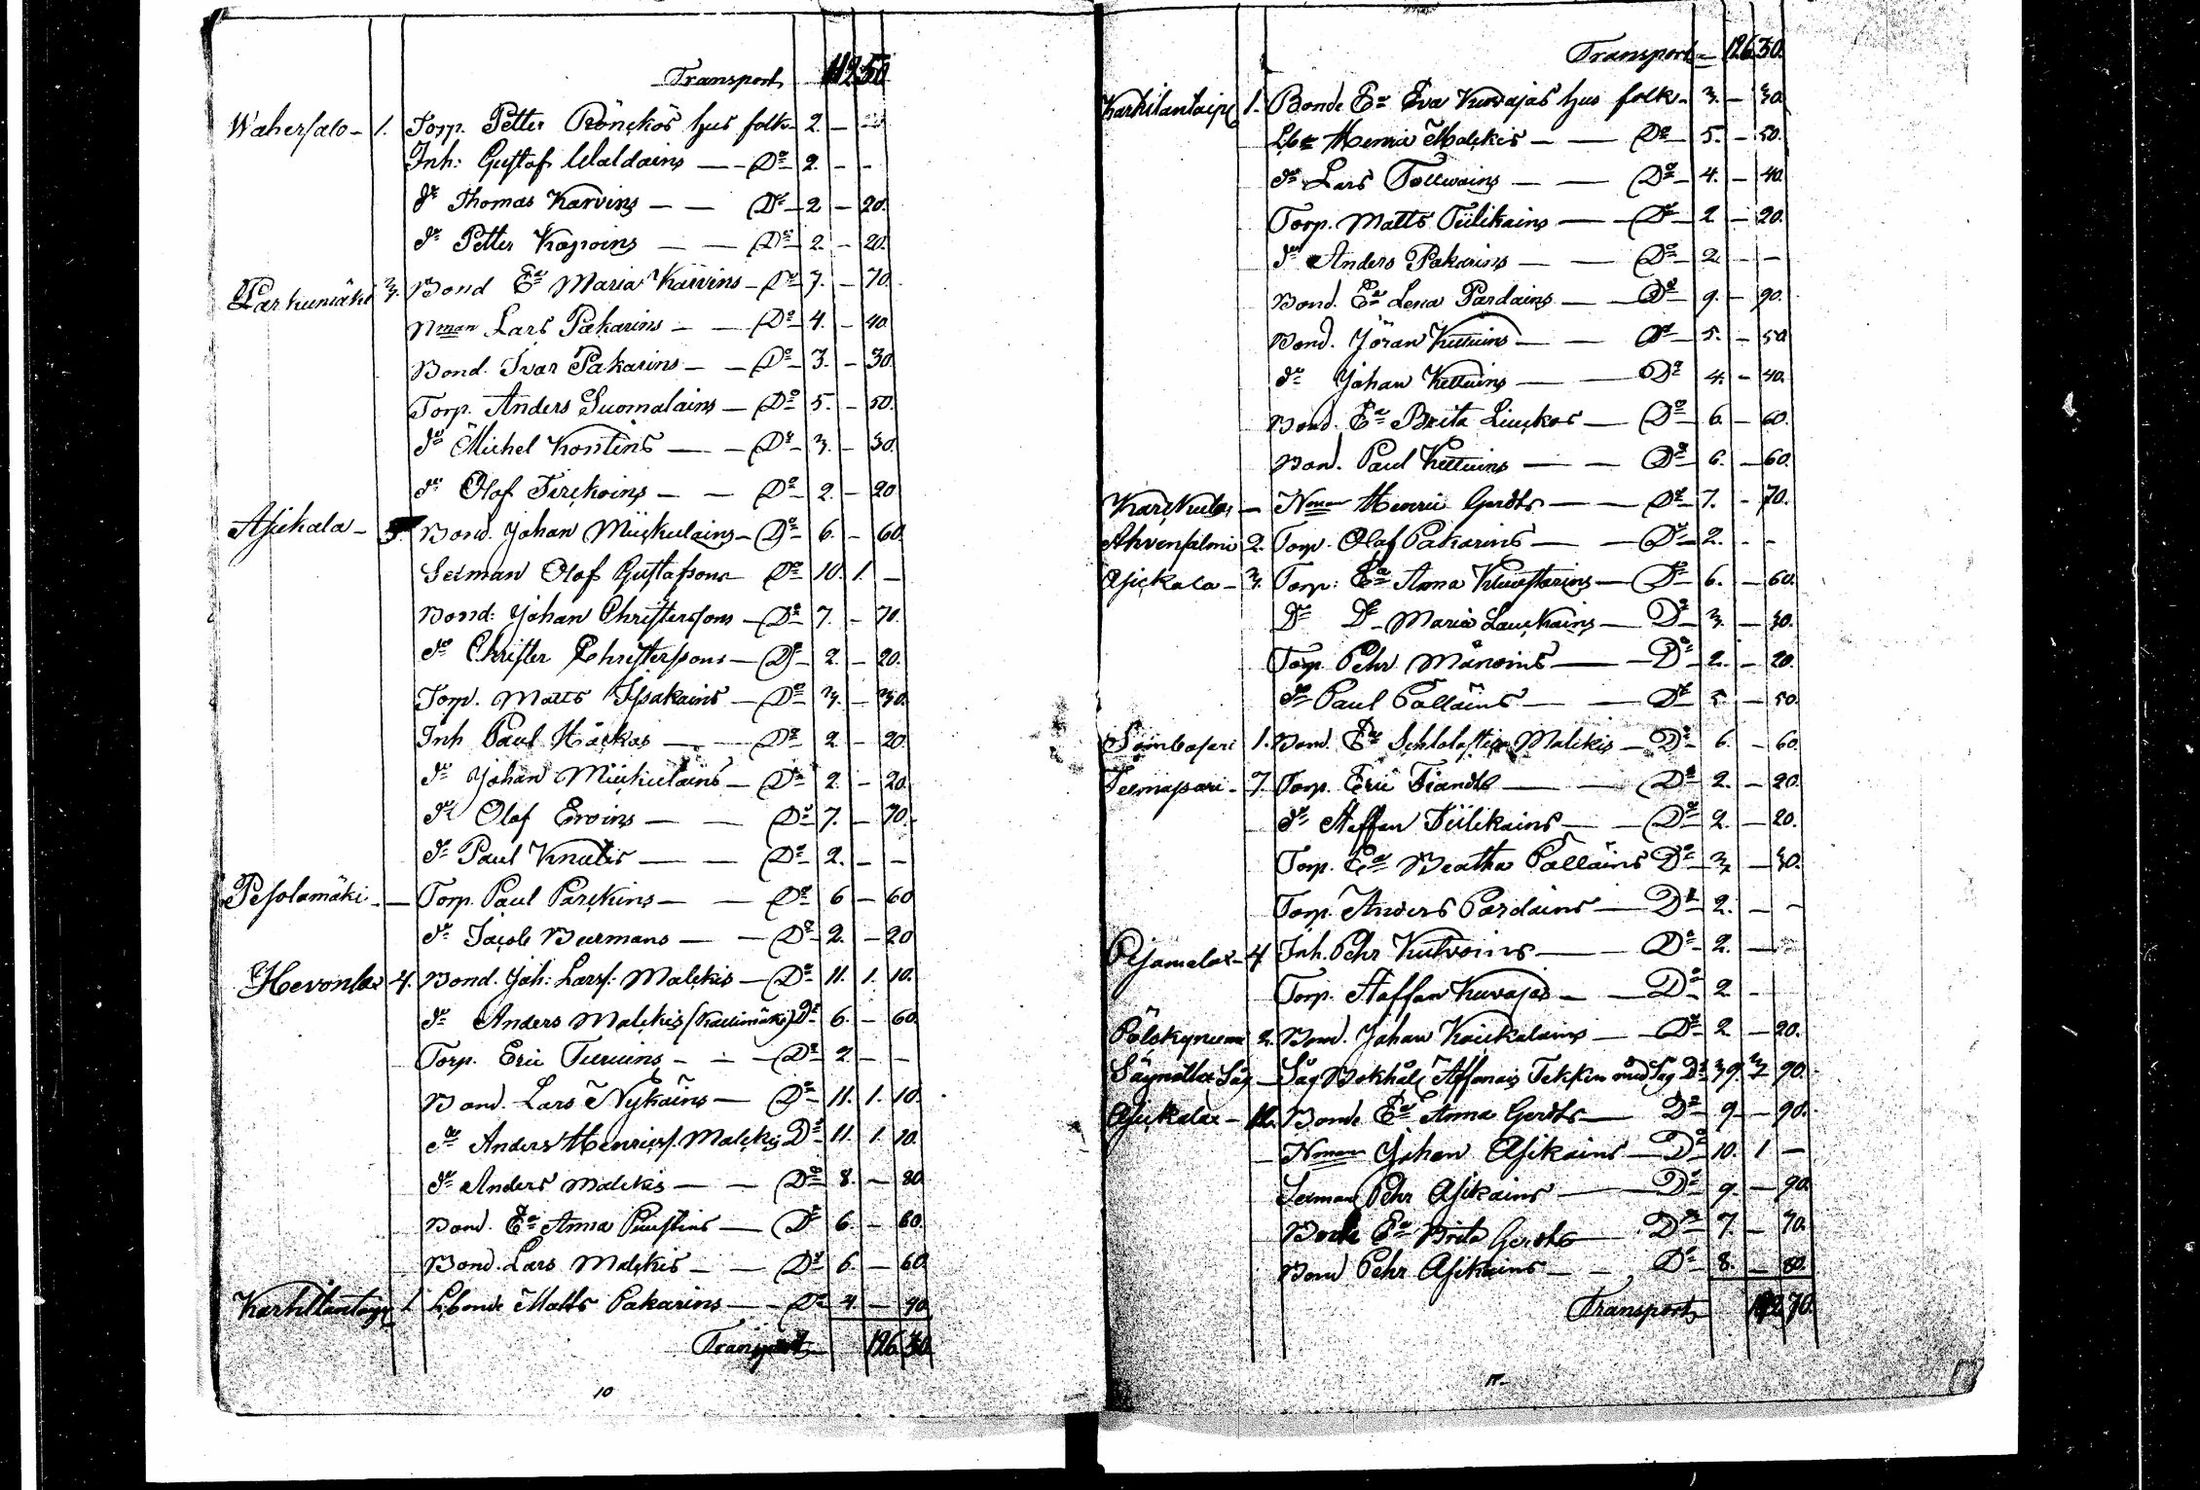 Transport 112 50
Wahersalo - 1. Torp. Petter Rönckös hus folk - 2. - -
Inh: Gustaf Waldains - Do 2. - -
do Thomas Karvins - - Do - 2 - 20.
do Petter Kapoins - - Do 2. - 20.
Parkumäki Bond Ea Maria Karvins - Do 7. - 70.
Nman Lars Pakarins - - Do 4. - 40.
Bond. Ivar Pakarins - - Do 3. - 30.
Torp. Anders Suomalains - Do 5. - 50.
do Michel Kontins - - Do 3. - 30.
do Olof Tirckoins - - Do 2. - 20
Asickala - Bond. Johan Mückulains - Do 6. - 60.
Sexman Olof Gustafsons Do 10. 1. -
Bond: Johan Christersons - Do 7. - 70.
do Christer Christerssons - Do 2. - 20.
Torp. Matts Issakains - Do 3. - 30.
Inh Paul Häckas - Do 2 - 20.
do Johan Mückulains - Do 2. - 20.
do Olof Ervins - - Do 7. - 70.
do Paul Knutis - - Do 2. - -
Pesolamäki - Torp. Paul Parckins - - Do 6 - 60
do Jacob Burmans - - Do 2. - 20
Hevonlax 4. Bond. Joh: Larss: Malckis - Do 11. 1. 10.
do Anders Malckis (Kallimäki) Do 6. - 60.
Torp. Eric Turuins - - - Do 2. - -
Bond. Lars Nykäins - Do 11. 1. 10.
do Anders Henricss. Malckis Do 11. 1. 10.
do Anders Malckis - - Do 8. - 80.
Bond. Ea Anna Puustins - Do 6. - 60.
Bond. Lars Malckis - - Do 6. - 60.
1. Lbonde Matts Pakarins - - Do 4. - 40.
Transport 126 30.
10
Transport - 126 30.
1. Bonde Ea Eva Kuvajas hus folk - 3. - 30.
Lbe Henric Malckis - - Do 5. - 50.
do Lars Tollwains - - Do 4. - 40.
Torp. Matts Tiilikains - - Do 2 - 20.
do Anders Pakarins - - Do 2. - -
Bond. Ea Lena Pardains - - Do 9. - 90.
Bond. Jöran Kettuins - - Do 5. - 50
do Johan Kettuins - - Do 4. - 40.
Bond. Ea Brita Liuckos - Do 6. - 60.
Bon. Paul Kettuins - - Do 6. - 60.
Karckulax - Nman Henric Gerdts - - Do 7. - 70.
Ahvensalmi 2. Torp. Olof Pakarins - - Do 2. - -
Asickala - 3. Torp: Ea Anna - Do 6. - 60.
Do Do Maria Lauckains - Do 3. - 30.
Torp. Pehr Mänoins - - Do 2. - 20.
do Paul Pälläins - - Do 5. - 50.
1. Bond. Ea Malckis - Do 6. - 60.
7. Torp. Eric Fiandts - - Do 2. - 20.
do Staffan Tiilikains - - Do 2. - 20.
Torp. Ea Beatha Pälläins Do 3. - 30.
Torp. Anders Pardains - Do 2. - -
Pijamalax - 4. Inh. Pehr Kutvoins - Do 2. - -
Torp. Staffan Kuvajas - - Do 2 -
2. Bond. Johan Kauckalains - Do 2 - 20.
Såg - Såg Bokhål. Affanais Tekkin med Såg Do 39. 3 90.
Asickalax - Bonde Ea Anna Gerdts - Do 9. - 90.
Nman Johan Asikains - Do 10. 1 -
Sexman Pehr Asikains - - Do 9. - 90.
Bonde Ea Brita Gerdts Do 7. - 70.
Bond Pehr Asikains - - Do 8. - 80.
Transport 70.